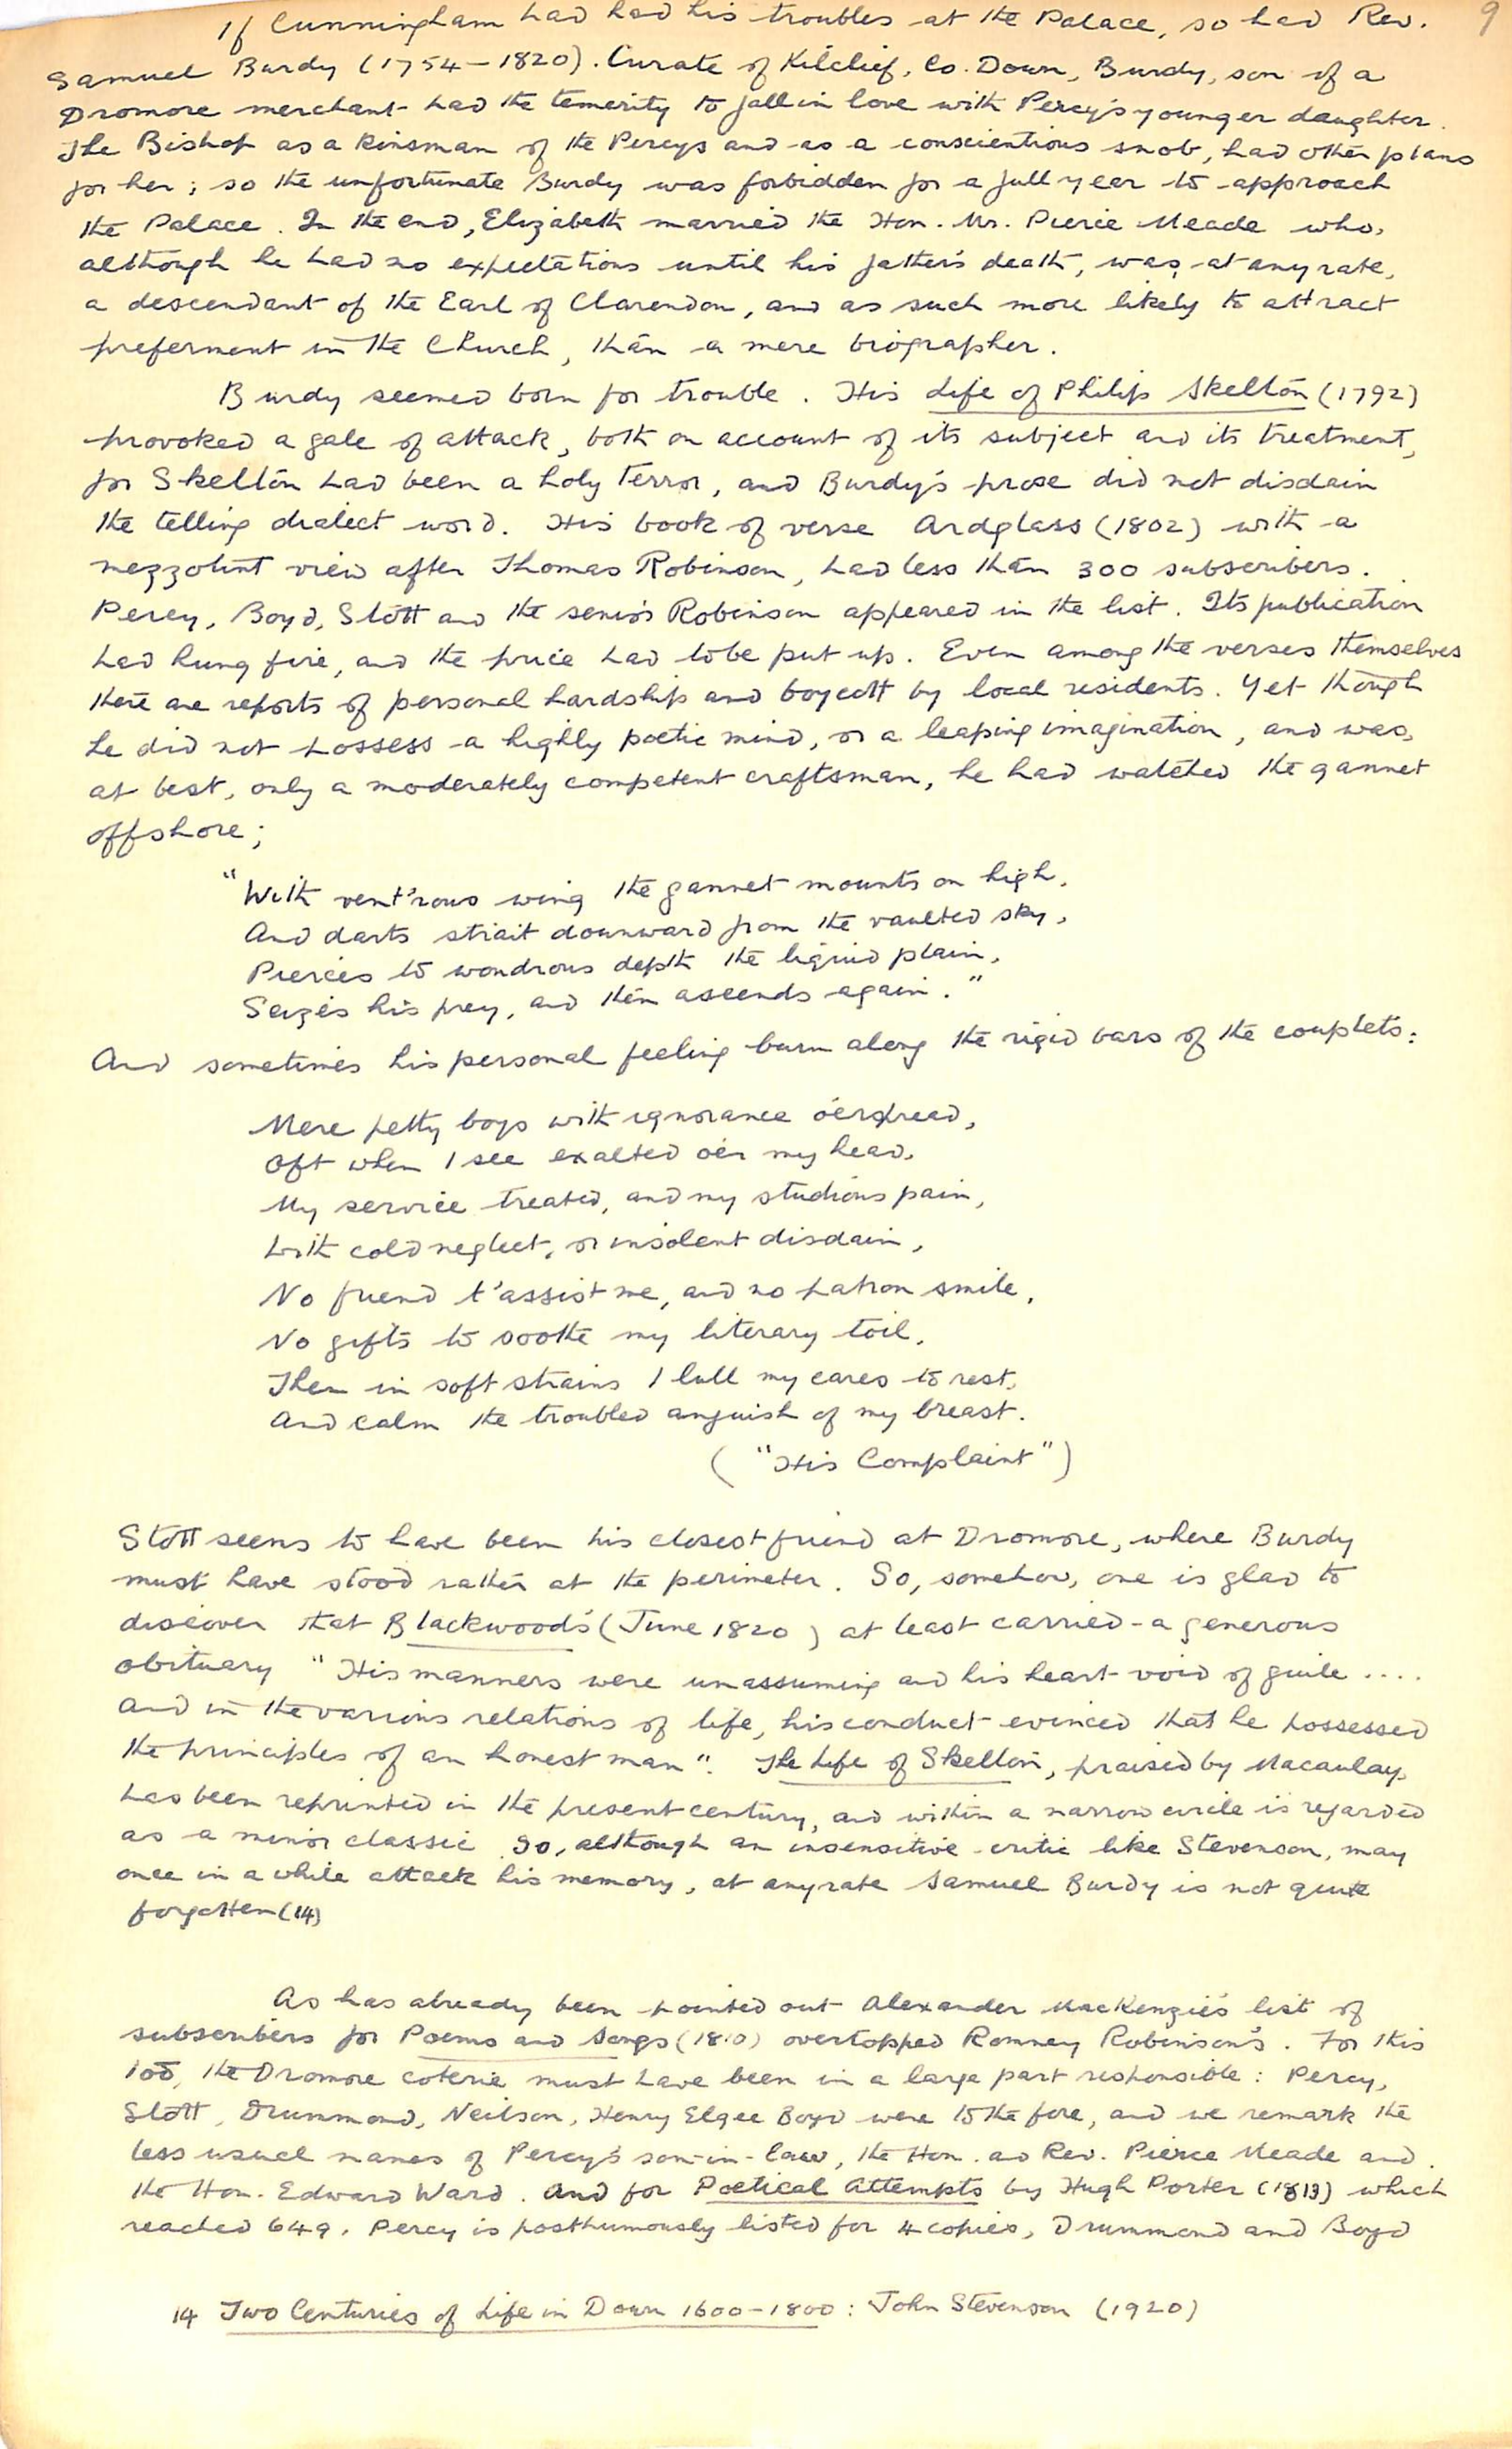 9
If Cunningham had had his troubles at the Palace, so had Rev.
Samuel Burdy (1754-1820). Curate of Kilclief, Co. Down, Burdy, son of a
Dromore merchant had the temerity to fall in love with Percy's younger daughter.
The Bishop as a kinsman of the Percys and as a conscientious snob, had other plans
for her; so the unfortunate Burdy was forbidden for a full year to approach
the Palace. In the end, Elizabeth married the Hon. Mr. Pierce Meade who,
although he had no expectations until his father's death, was, at any rate,
a descendant of the Earl of Clarendon, and as such more likely to attract
preferment in the Church, than a mere biographer.
Burdy seemed born for trouble. His Life of Philip Skelton (1792)
provoked a gale of attack, both on account of its subject and its treatment,
for Skelton had been a holy terror, and Burdy's prose did not disdain
the telling dialect word. His book of verse Ardglass (1802) with a
mezzotint view after Thomas Robinson, had less than 300 subscribers.
Percy, Boyd, Stott and the senior Robinson appeared in the list. Its publication
had hung fire, and the price had to be put up. Even among the verses themselves
there are reports of personal hardship and boycott by local residents. Yet though
he did not possess a highly poetic mind, or a leaping imagination, and was,
at best, only a moderately competent craftsman, he had watched the gannet
offshore;
"With vent'rous wing the gannet mounts on high,
And darts strait downward from the vaulted sky,
Pierces to wondrous depth the liquid plain,
Seizes his prey, and then ascends again."
And sometimes his personal feeling burn along the rigid bars of the couplets:
Mere petty boys with ignorance o'erspread,
Oft when I see exalted o'er my head,
My service treated, and my studious pain,
With cold neglect, or insolent disdain,
No friend t'assist me, and no patron smile,
No gifts to soothe my literary toil,
Then in soft strains I lull my cares to rest,
And calm the troubled anguish of my breast.
("His Complaint")
Stott seems to have been his closest friend at Dromore, where Burdy
must have stood rather at the perimeter. So, somehow, one is glad to
discover that Blackwood's (June 1820) at least carried a generous
obituary "His manners were unassuming and his heart void of guile ....
And in the various relations of life, his conduct evinced that he possessed
the principles of an honest man". The Life of Skelton, praised by Macaulay,
has been reprinted in the present century, and within a narrow circle is regarded
as a minor classic. So, although an insensitive critic like Stevenson, may
once in a while attack his memory, at any rate Samuel Burdy is not quite
forgotten (14)
As has already been pointed out Alexander MacKenzie's list of
subscribers for Poems and Songs (1810) overtopped Romney Robinson's. For this
too, the Dromore coterie must have been in a large part responsible: Percy,
Stott, Drummond, Neilson, Henry Elgee Boyd were to the fore, and we remark the
less usual names of Percy's son-in-law, the Hon. and Rev. Pierce Meade and
the Hon. Edward Ward. And for Poetical Attempts by Hugh Porter (1813) which
reached 649, Percy is posthumously listed for 4 copies, Drummond and Boyd
14 Two Centuries of Life in Down 1600-1800: John Stevenson (1920)